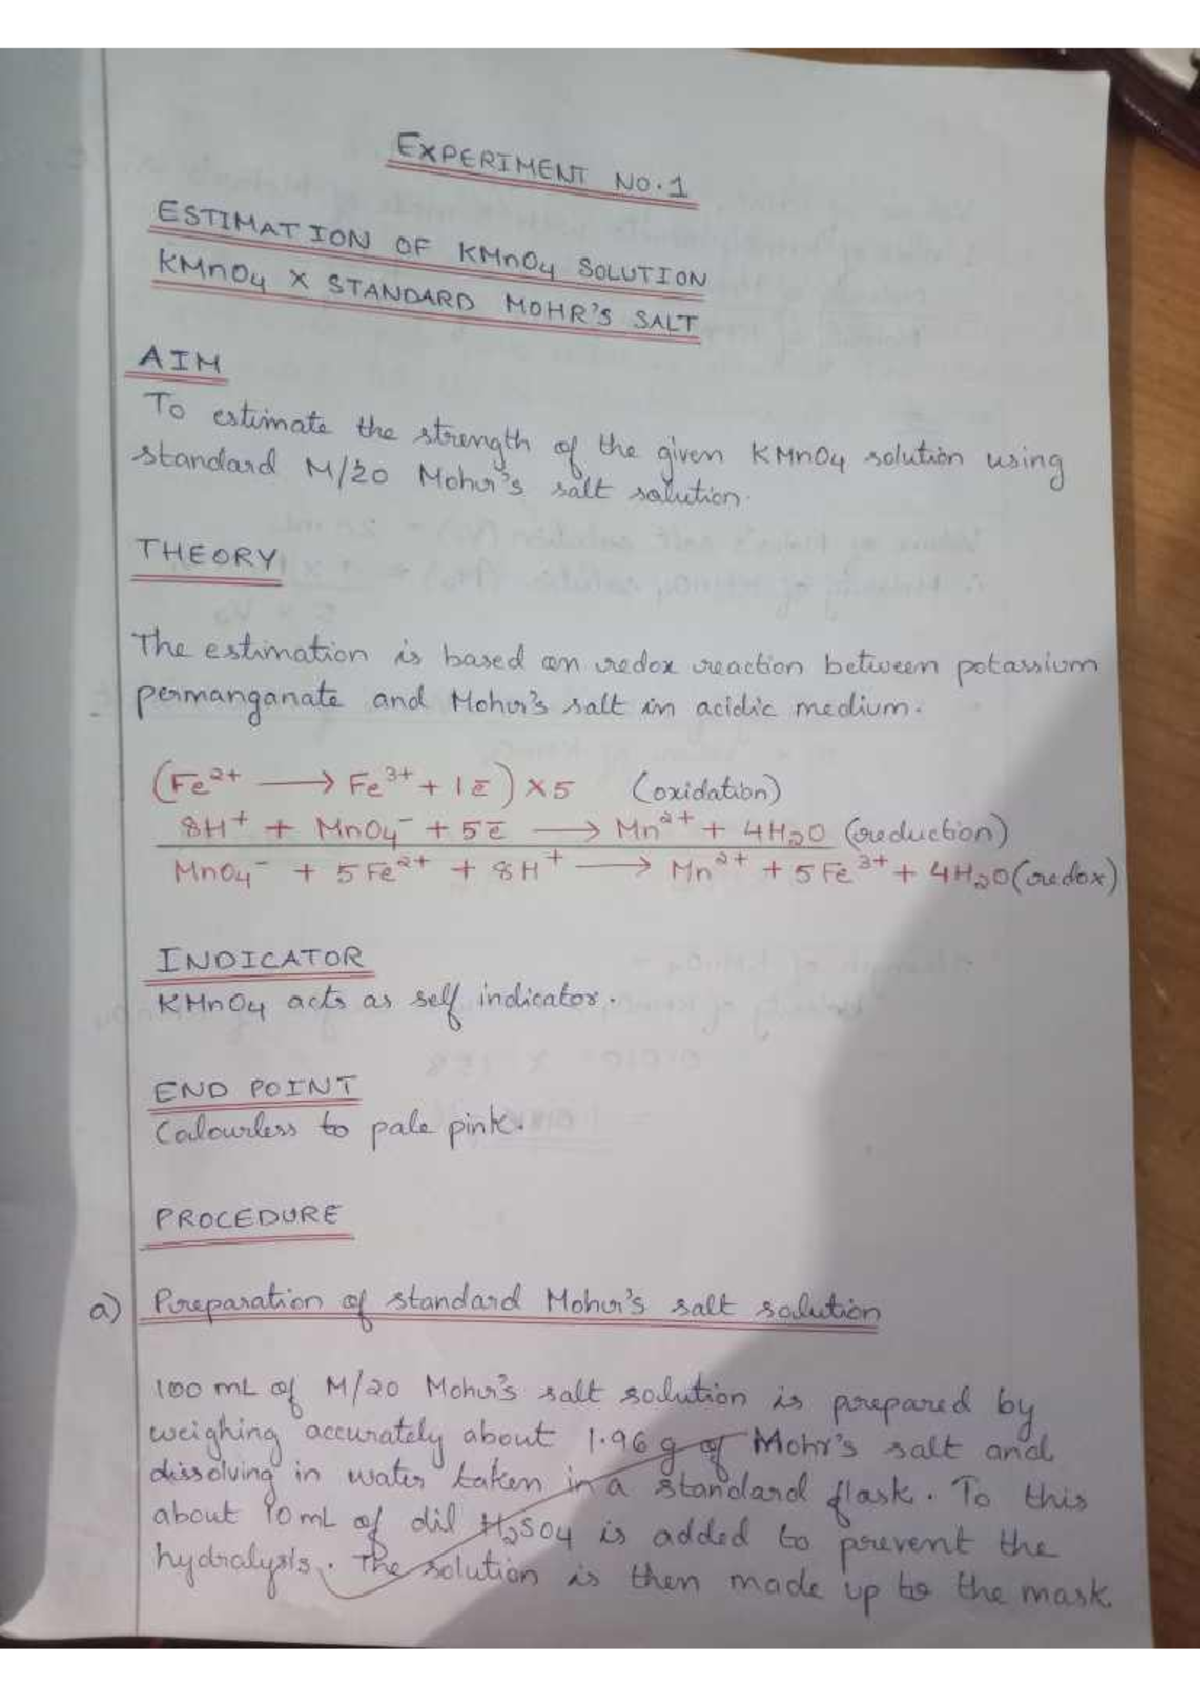 EXPERIMENT NO. 1
ESTIMATION OF KMnO4 SOLUTION
KMnO4 X STANDARD MOHR'S SALT
AIM
To estimate the strength of the given KMnO4 solution using
standard M/20 Mohr's salt solution.
THEORY
The estimation is based on redox reaction between potassium
permanganate and Mohr's salt in acidic medium.
(Fe²⁺ ⟶ Fe³⁺ + 1ē) × 5 (oxidation)
8H⁺ + MnO4⁻ + 5ē ⟶ Mn²⁺ + 4H2O (reduction)
MnO4⁻ + 5Fe²⁺ + 8H⁺ ⟶ Mn²⁺ + 5Fe³⁺ + 4H2O (redox)
INDICATOR
KMnO4 acts as self indicator.
END POINT
Colourless to pale pink.
PROCEDURE
a) Preparation of standard Mohr's salt solution
100 mL of M/20 Mohr's salt solution is prepared by
weighing accurately about 1.96 g of Mohr's salt and
dissolving in water taken in a standard flask. To this
about 10 mL of dil H2SO4 is added to prevent the
hydralysis. The solution is then made up to the mark